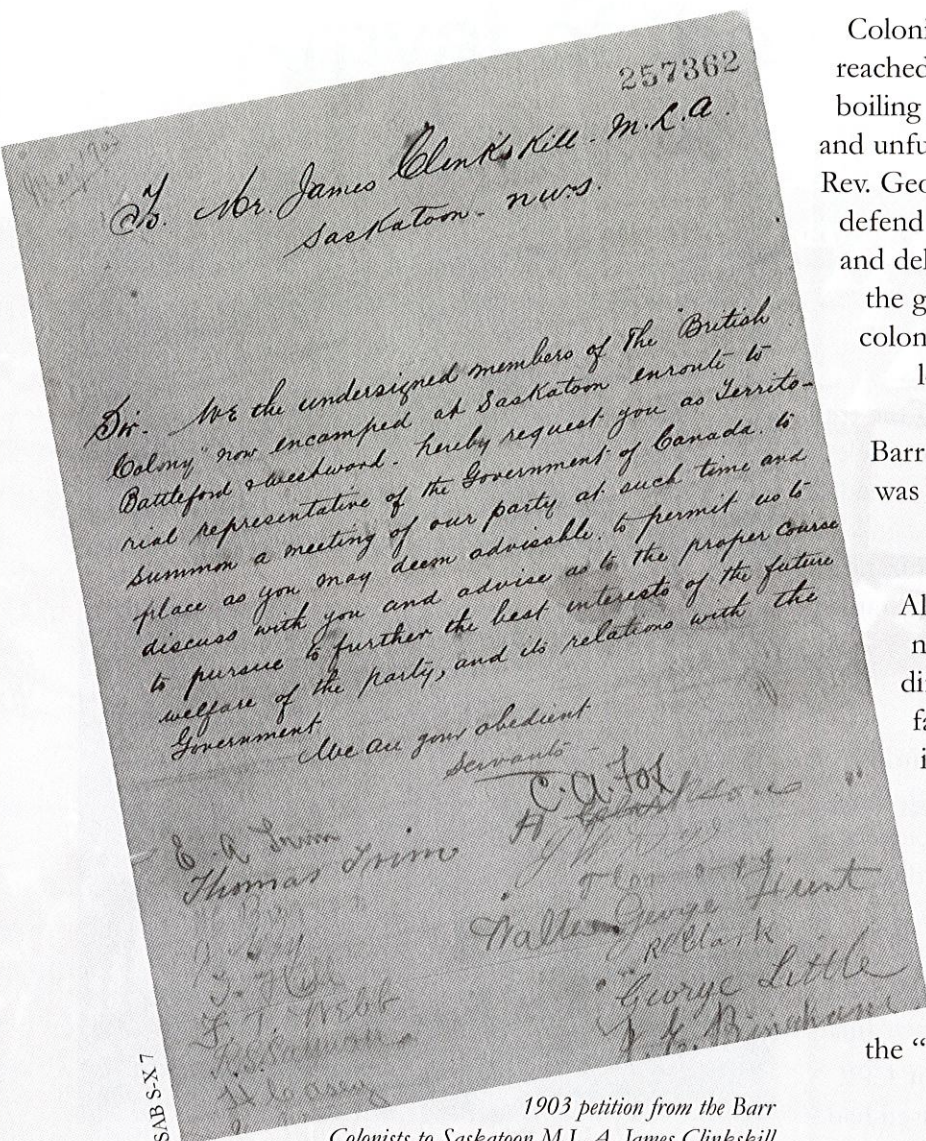 257362
May 1903
To. Mr. James Clenkskill - M.L.A.
Saskatoon - N.W.S.
Sir. We the undersigned members of The "British
Colony" now encamped at Saskatoon enroute to
Battleford & Westward. hereby request you as Territo-
rial representative of the Government of Canada. to
summon a meeting of our party at such time and
place as you may deem advisable. to permit us to
discuss with you and advise as to the proper course
to pursue to further the best interests of the future
welfare of the party, and its relations with the
Government
We are your obedient
Servants -
C. A. Fox
E. A. Trim
Thomas Trim
Walter George Hunt
R Clark
T. Hill
George Little
F. T. Webb
Bingham
H Casey
SAB S-X 7
1903 petition from the Barr
Colonists to Saskatoon M.L.A. James Clinkskill
Coloni
reached
boiling
and unfu
Rev. Geo
defend
and del
the g
colon
l
Barr
was
Al
n
di
fa
i
the "